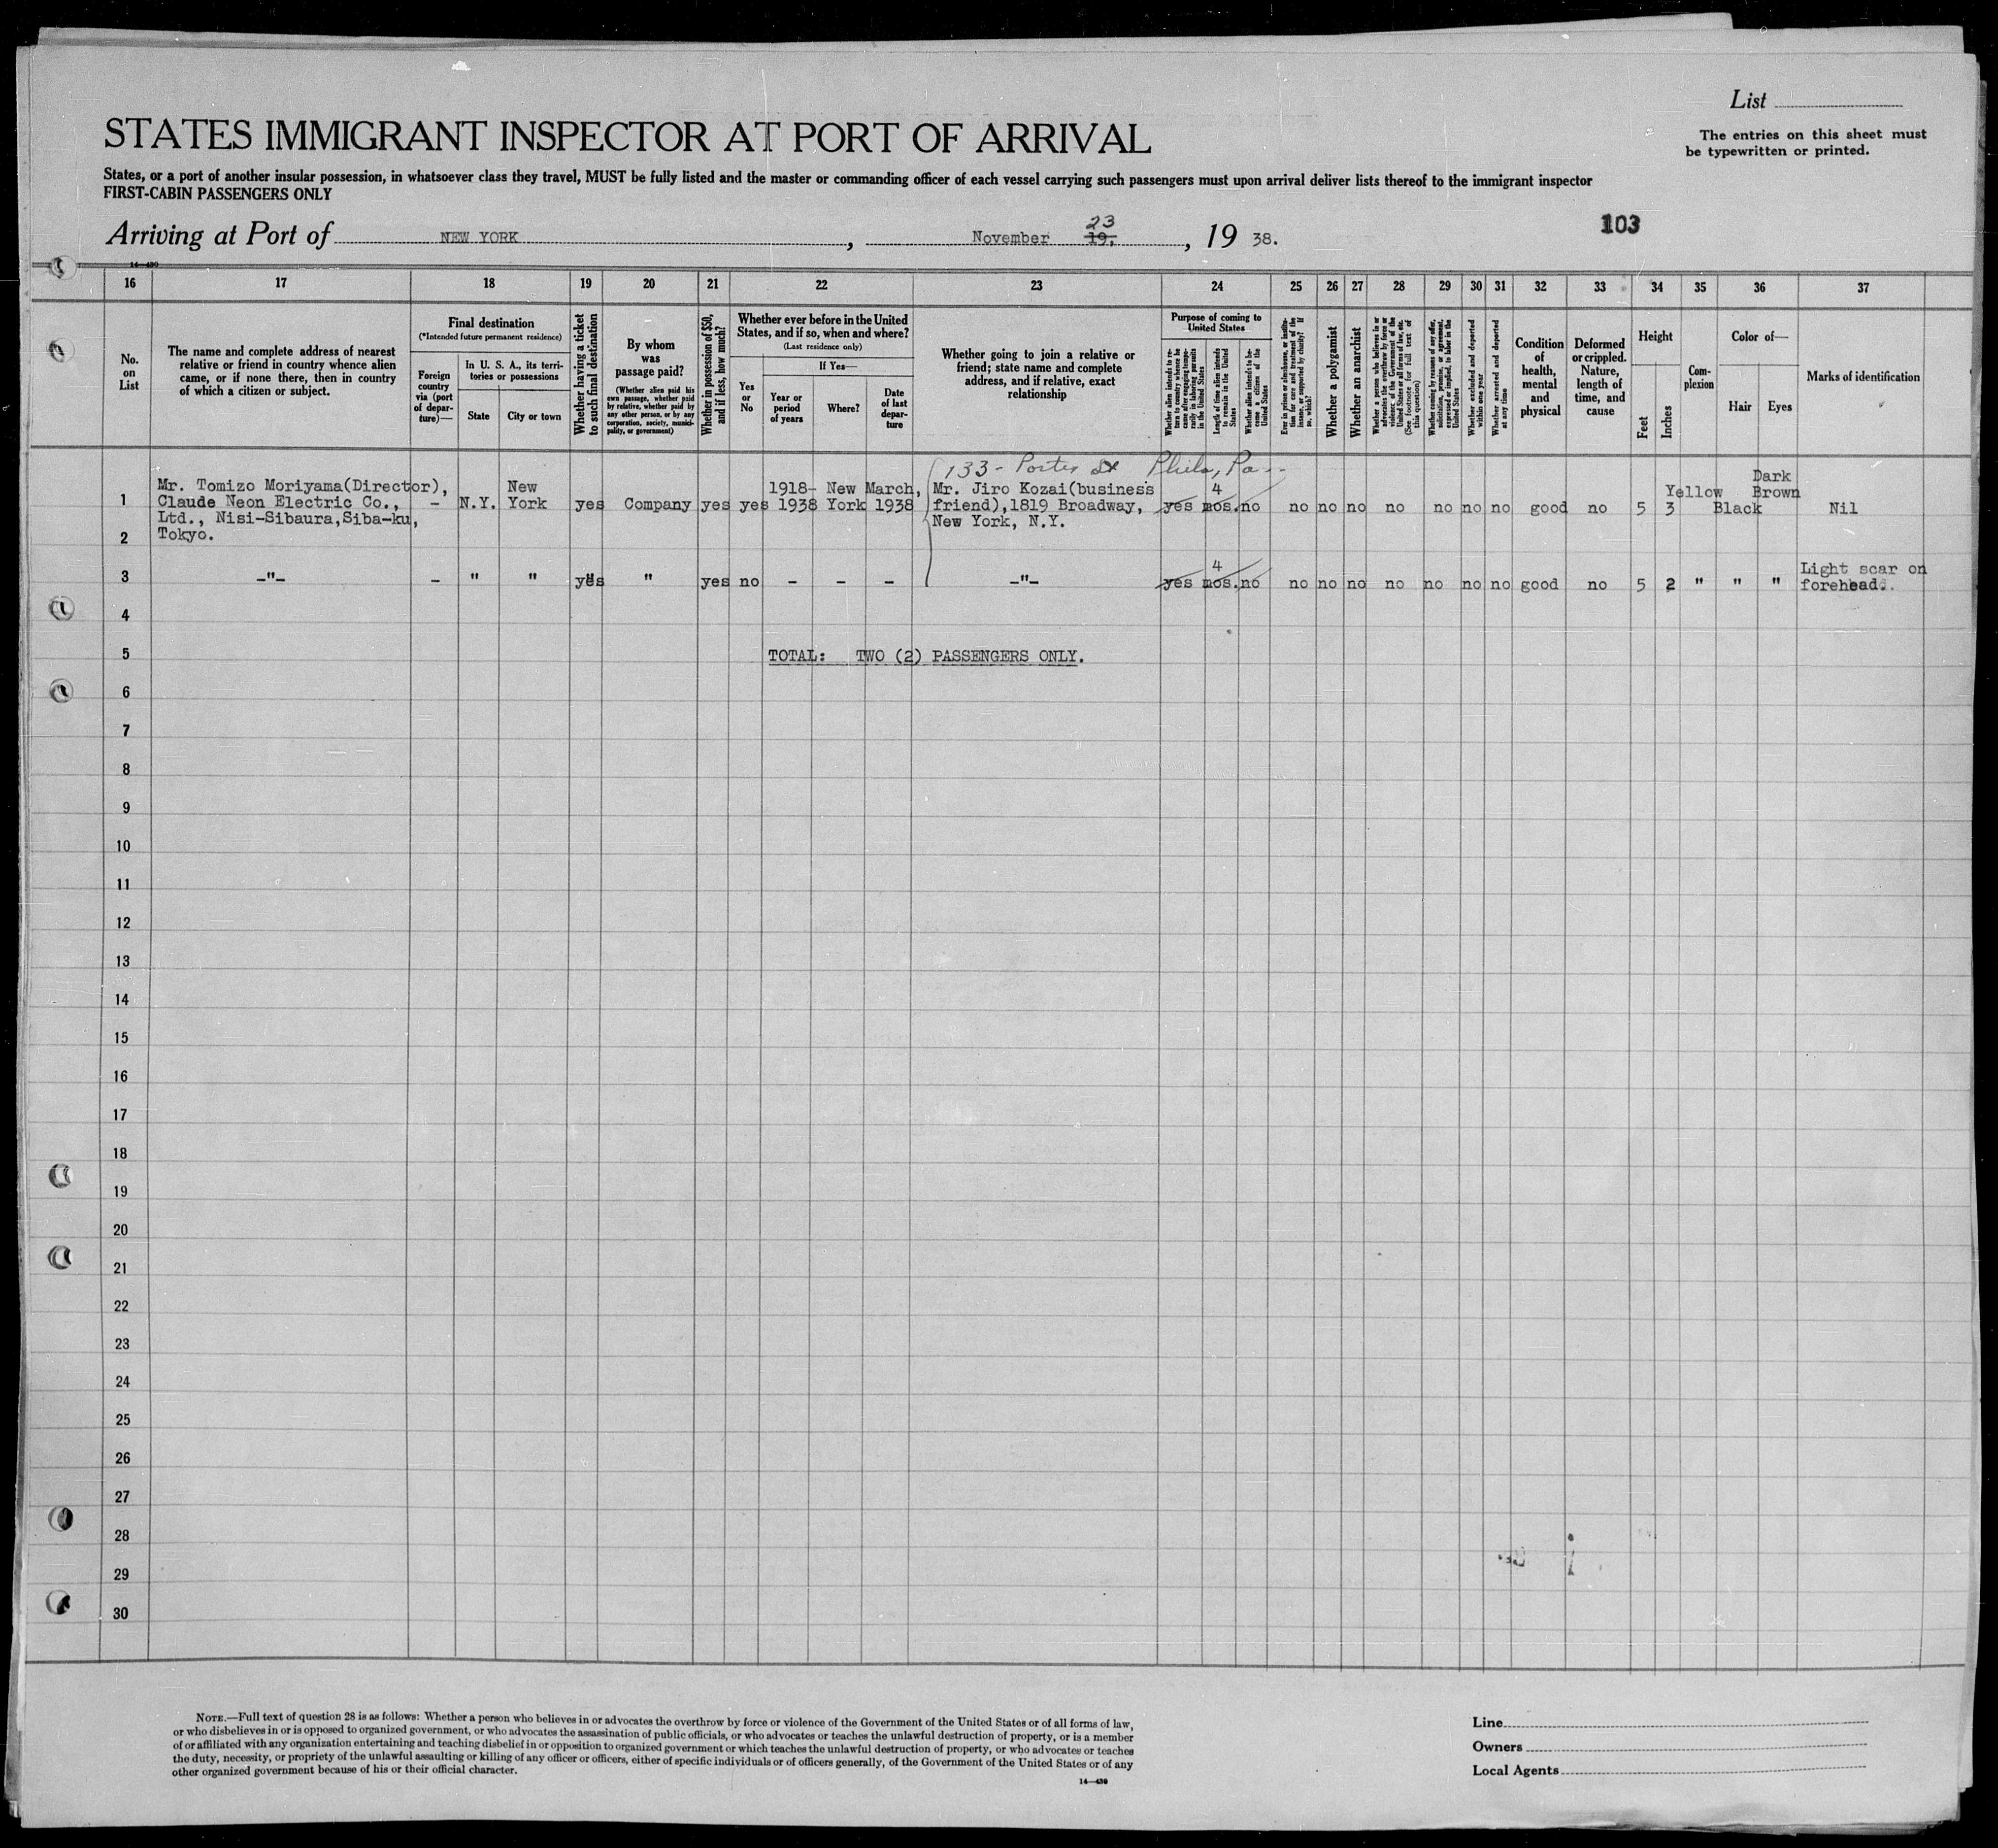 List
STATES IMMIGRANT INSPECTOR AT PORT OF ARRIVAL
The entries on this sheet must
be typewritten or printed.
States, or a port of another insular possession, in whatsoever class they travel, MUST be fully listed and the master or commanding officer of each vessel carrying such passengers must upon arrival deliver lists thereof to the immigrant inspector
FIRST-CABIN PASSENGERS ONLY
103
Arriving at Port of NEW YORK, November 19, 23, 19 38.
14—430
16 17 18 19 20 21 22 23 24 25 26 27 28 29 30 31 32 33 34 35 36 37
No.
on
List
The name and complete address of nearest
relative or friend in country whence alien
came, or if none there, then in country
of which a citizen or subject.
Final destination
(*Intended future permanent residence)
Foreign
country
via (port
of depar-
ture)—
In U. S. A., its terri-
tories or possessions
State
City or town
Whether having a ticket
to such final destination
By whom
was
passage paid?
(Whether alien paid his
own passage, whether paid
by relative, whether paid by
any other person, or by any
corporation, society, munici-
pality, or government)
Whether in possession of $50,
and if less, how much?
Whether ever before in the United
States, and if so, when and where?
(Last residence only)
Yes
or
No
If Yes—
Year or
period
of years
Where?
Date
of last
depar-
ture
Whether going to join a relative or
friend; state name and complete
address, and if relative, exact
relationship
Purpose of coming to
United States
Whether alien intends to re-
turn to country whence he
came after engaging tempo-
rarily in laboring pursuits
in the United States
Length of time alien intends
to remain in the United
States
Whether alien intends to be-
come a citizen of the
United States
Ever in prison or almshouse, or institu-
tion for care and treatment of the
insane, or supported by charity? If
so, which?
Whether a polygamist
Whether an anarchist
Whether a person who believes in or
advocates the overthrow by force or
violence of the Government of the
United States or all forms of law, etc.
(See footnote for full text of
this question)
Whether coming by reason of any offer,
solicitation, promise, or agreement,
expressed or implied, to labor in the
United States
Whether excluded and deported
within one year
Whether arrested and deported
at any time
Condition
of
health,
mental
and
physical
Deformed
or crippled.
Nature,
length of
time, and
cause
Height
Feet
Inches
Com-
plexion
Color of—
Hair
Eyes
Marks of identification
133- Porter St Phila, Pa.
1
Mr. Tomizo Moriyama(Director),
Claude Neon Electric Co.,
Ltd., Nisi-Sibaura,Siba-ku,
Tokyo.
– N.Y. New
York
yes Company yes yes 1918-
1938
New
York
March,
1938
Mr. Jiro Kozai(business
friend),1819 Broadway,
New York, N.Y.
yes 4
mos. no no no no no no no no good no 5 3 Yellow Black Dark
Brown
Nil
2
3 –"– – " " yes " yes no – – – –"– yes 4
mos. no no no no no no no no good no 5 2 " " " Light scar on
forehead.
4
5 TOTAL: TWO (2) PASSENGERS ONLY.
6
7
8
9
10
11
12
13
14
15
16
17
18
19
20
21
22
23
24
25
26
27
28
29
30
NOTE.—Full text of question 28 is as follows: Whether a person who believes in or advocates the overthrow by force or violence of the Government of the United States or of all forms of law,
or who disbelieves in or is opposed to organized government, or who advocates the assassination of public officials, or who advocates or teaches the unlawful destruction of property, or is a member
of or affiliated with any organization entertaining and teaching disbelief in or opposition to organized government or which teaches the unlawful destruction of property, or who advocates or teaches
the duty, necessity, or propriety of the unlawful assaulting or killing of any officer or officers, either of specific individuals or of officers generally, of the Government of the United States or of any
other organized government because of his or their official character.
14—430
Line
Owners
Local Agents